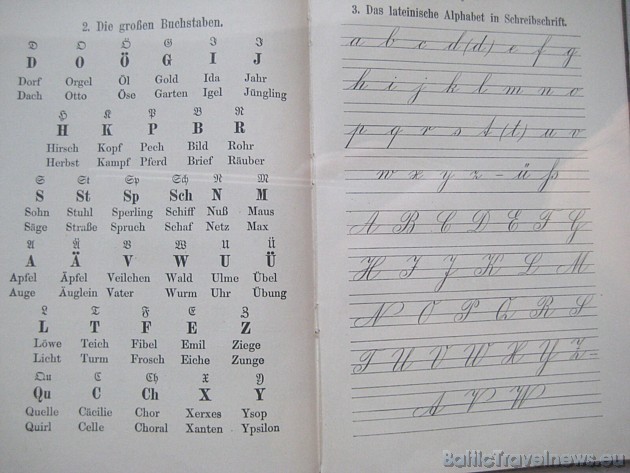 2. Die großen Buchstaben.
𝔇 𝔒 𝔒̈ 𝔊 ℑ ℑ
D O Ö G I J
Dorf Orgel Öl Gold Ida Jahr
Dach Otto Öse Garten Igel Jüngling
ℌ 𝔎 𝔓 𝔅 ℜ
H K P B R
Hirsch Kopf Pech Bild Rohr
Herbst Kampf Pferd Brief Räuber
𝔖 𝔖𝔱 𝔖𝔭 𝔖𝔠𝔥 𝔑 𝔐
S St Sp Sch N M
Sohn Stuhl Sperling Schiff Nuß Maus
Säge Straße Spruch Schaf Netz Max
𝔄 𝔄̈ 𝔙 𝔚 𝔘 𝔘̈
A Ä V W U Ü
Apfel Äpfel Veilchen Wald Ulme Übel
Auge Äuglein Vater Wurm Uhr Übung
𝔏 𝔗 𝔉 𝔈 ℨ
L T F E Z
Löwe Teich Fibel Emil Ziege
Licht Turm Frosch Eiche Zunge
𝔔𝔲 ℭ ℭ𝔥 𝔛 𝔜
Qu C Ch X Y
Quelle Cäcilie Chor Xerxes Ysop
Quirl Celle Choral Xanten Ypsilon
3. Das lateinische Alphabet in Schreibschrift.
a b c d (d) e f g
h i j k l m n o
p q r s t (t) u v
w x y z – ü ß
A B C D E F G
H I J K L M
N O P Q R S
T U V W X Y Z –
A V W
BalticTravelnews.eu